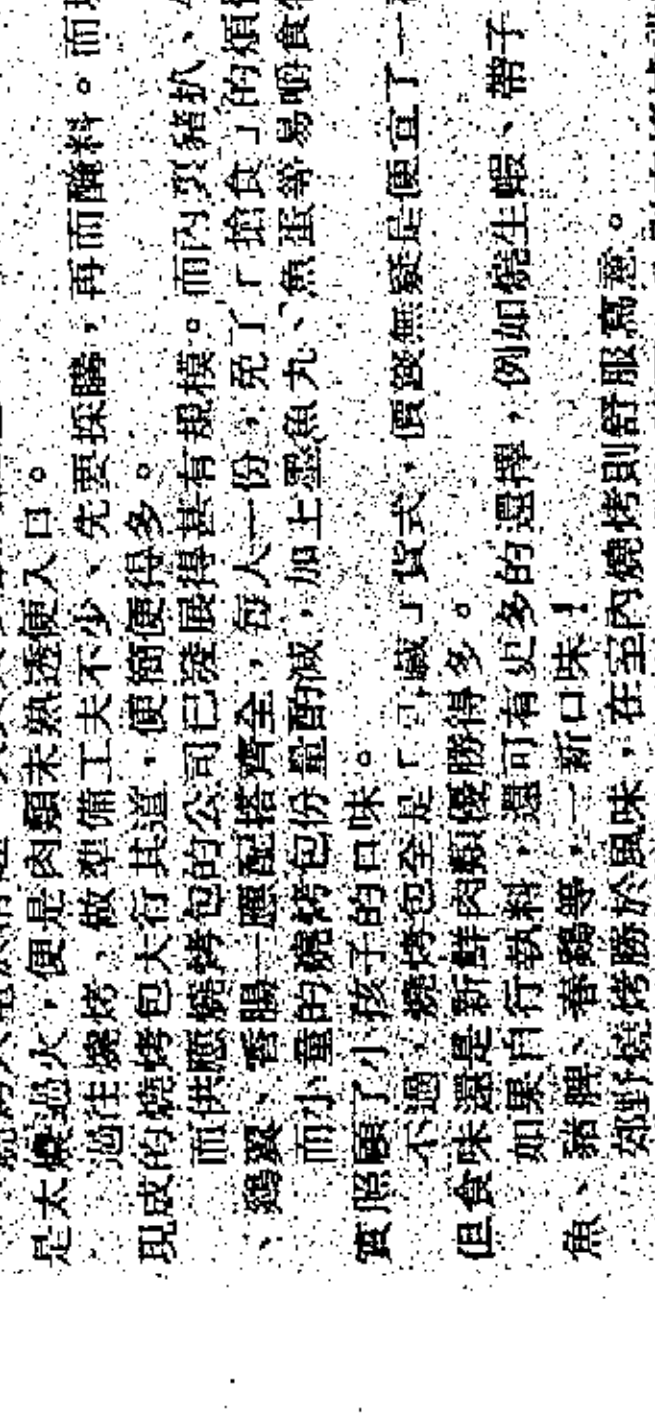 是太爆過火,便是肉類未熟透便入口。
過往燒烤、做準備工夫不少、先要採購,再而醃料。而
現成的燒烤包大行其道,便簡便得多。
而供應燒烤包的公司已發展得甚有規模。而內頁豬扒、
、鷄翼、香腸一應配搭齊全,每人一份,免了「搶食」的煩
而小量的燒烤包份量酌減,加上墨魚丸、魚蛋等易嚼食
實照顧了小孩子的口味。
不過,燒烤包全是「藏」貨式,價錢無疑是便宜了一
但食味還是新鮮肉類優勝得多。
如果自行執料,還可有更多的選擇,例如燒生蝦、帶子
魚、豬脾、春鷄等,一新口味!
郊野燒烤勝於風味,在室內燒烤則舒服寫意。